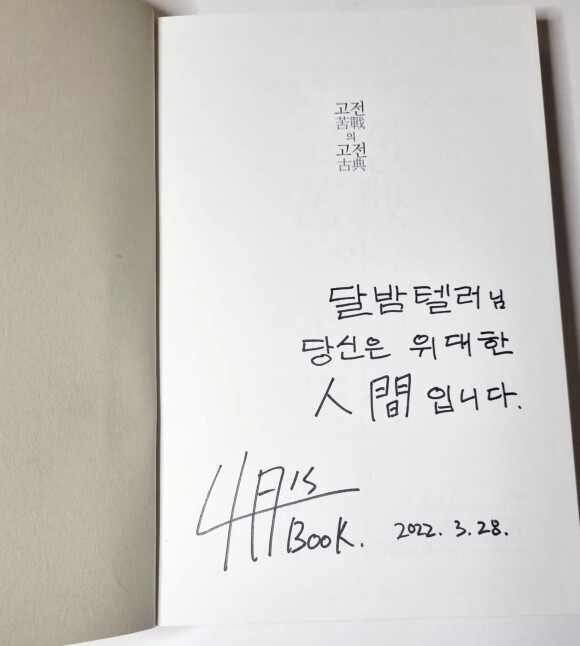 고전
苦戰
의
고전
古典
달밤텔러님
당신은 위대한
人間입니다.
4月is
BOOK. 2022. 3. 28.